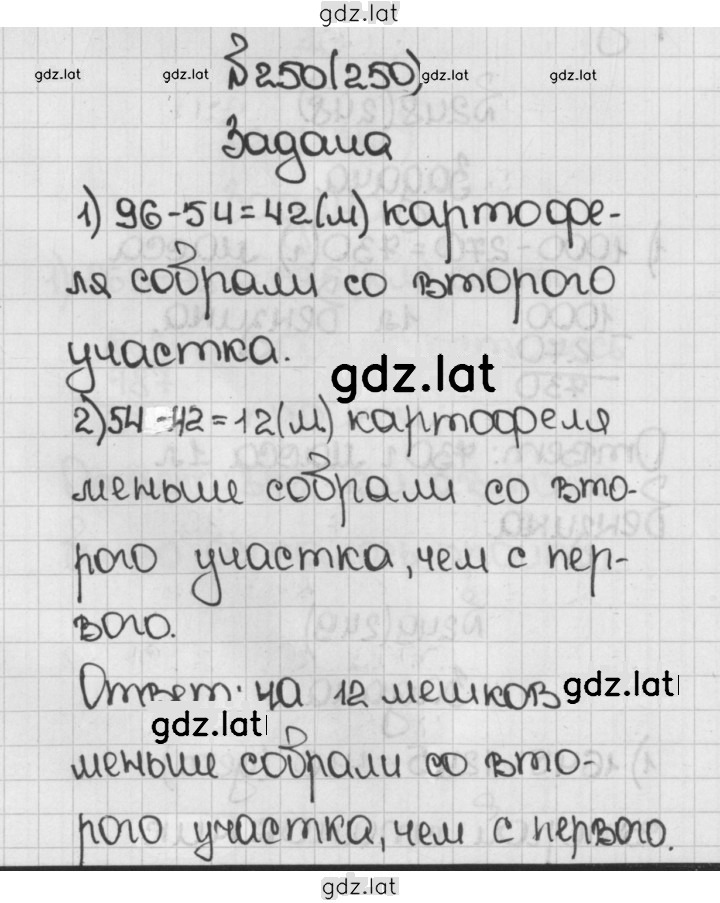 gdz.lat
№250(250)
gdz.lat gdz.lat gdz.lat gdz.lat
Задача
1) 96-54=42(м) картофе-
ля собрали со второго
участка.
gdz.lat
2) 54-42=12(м) картофеля
меньше собрали со вто-
рого участка, чем с пер-
вого.
Ответ: на 12 мешков gdz.lat
gdz.lat
меньше собрали со вто-
рого участка, чем с первого.
gdz.lat